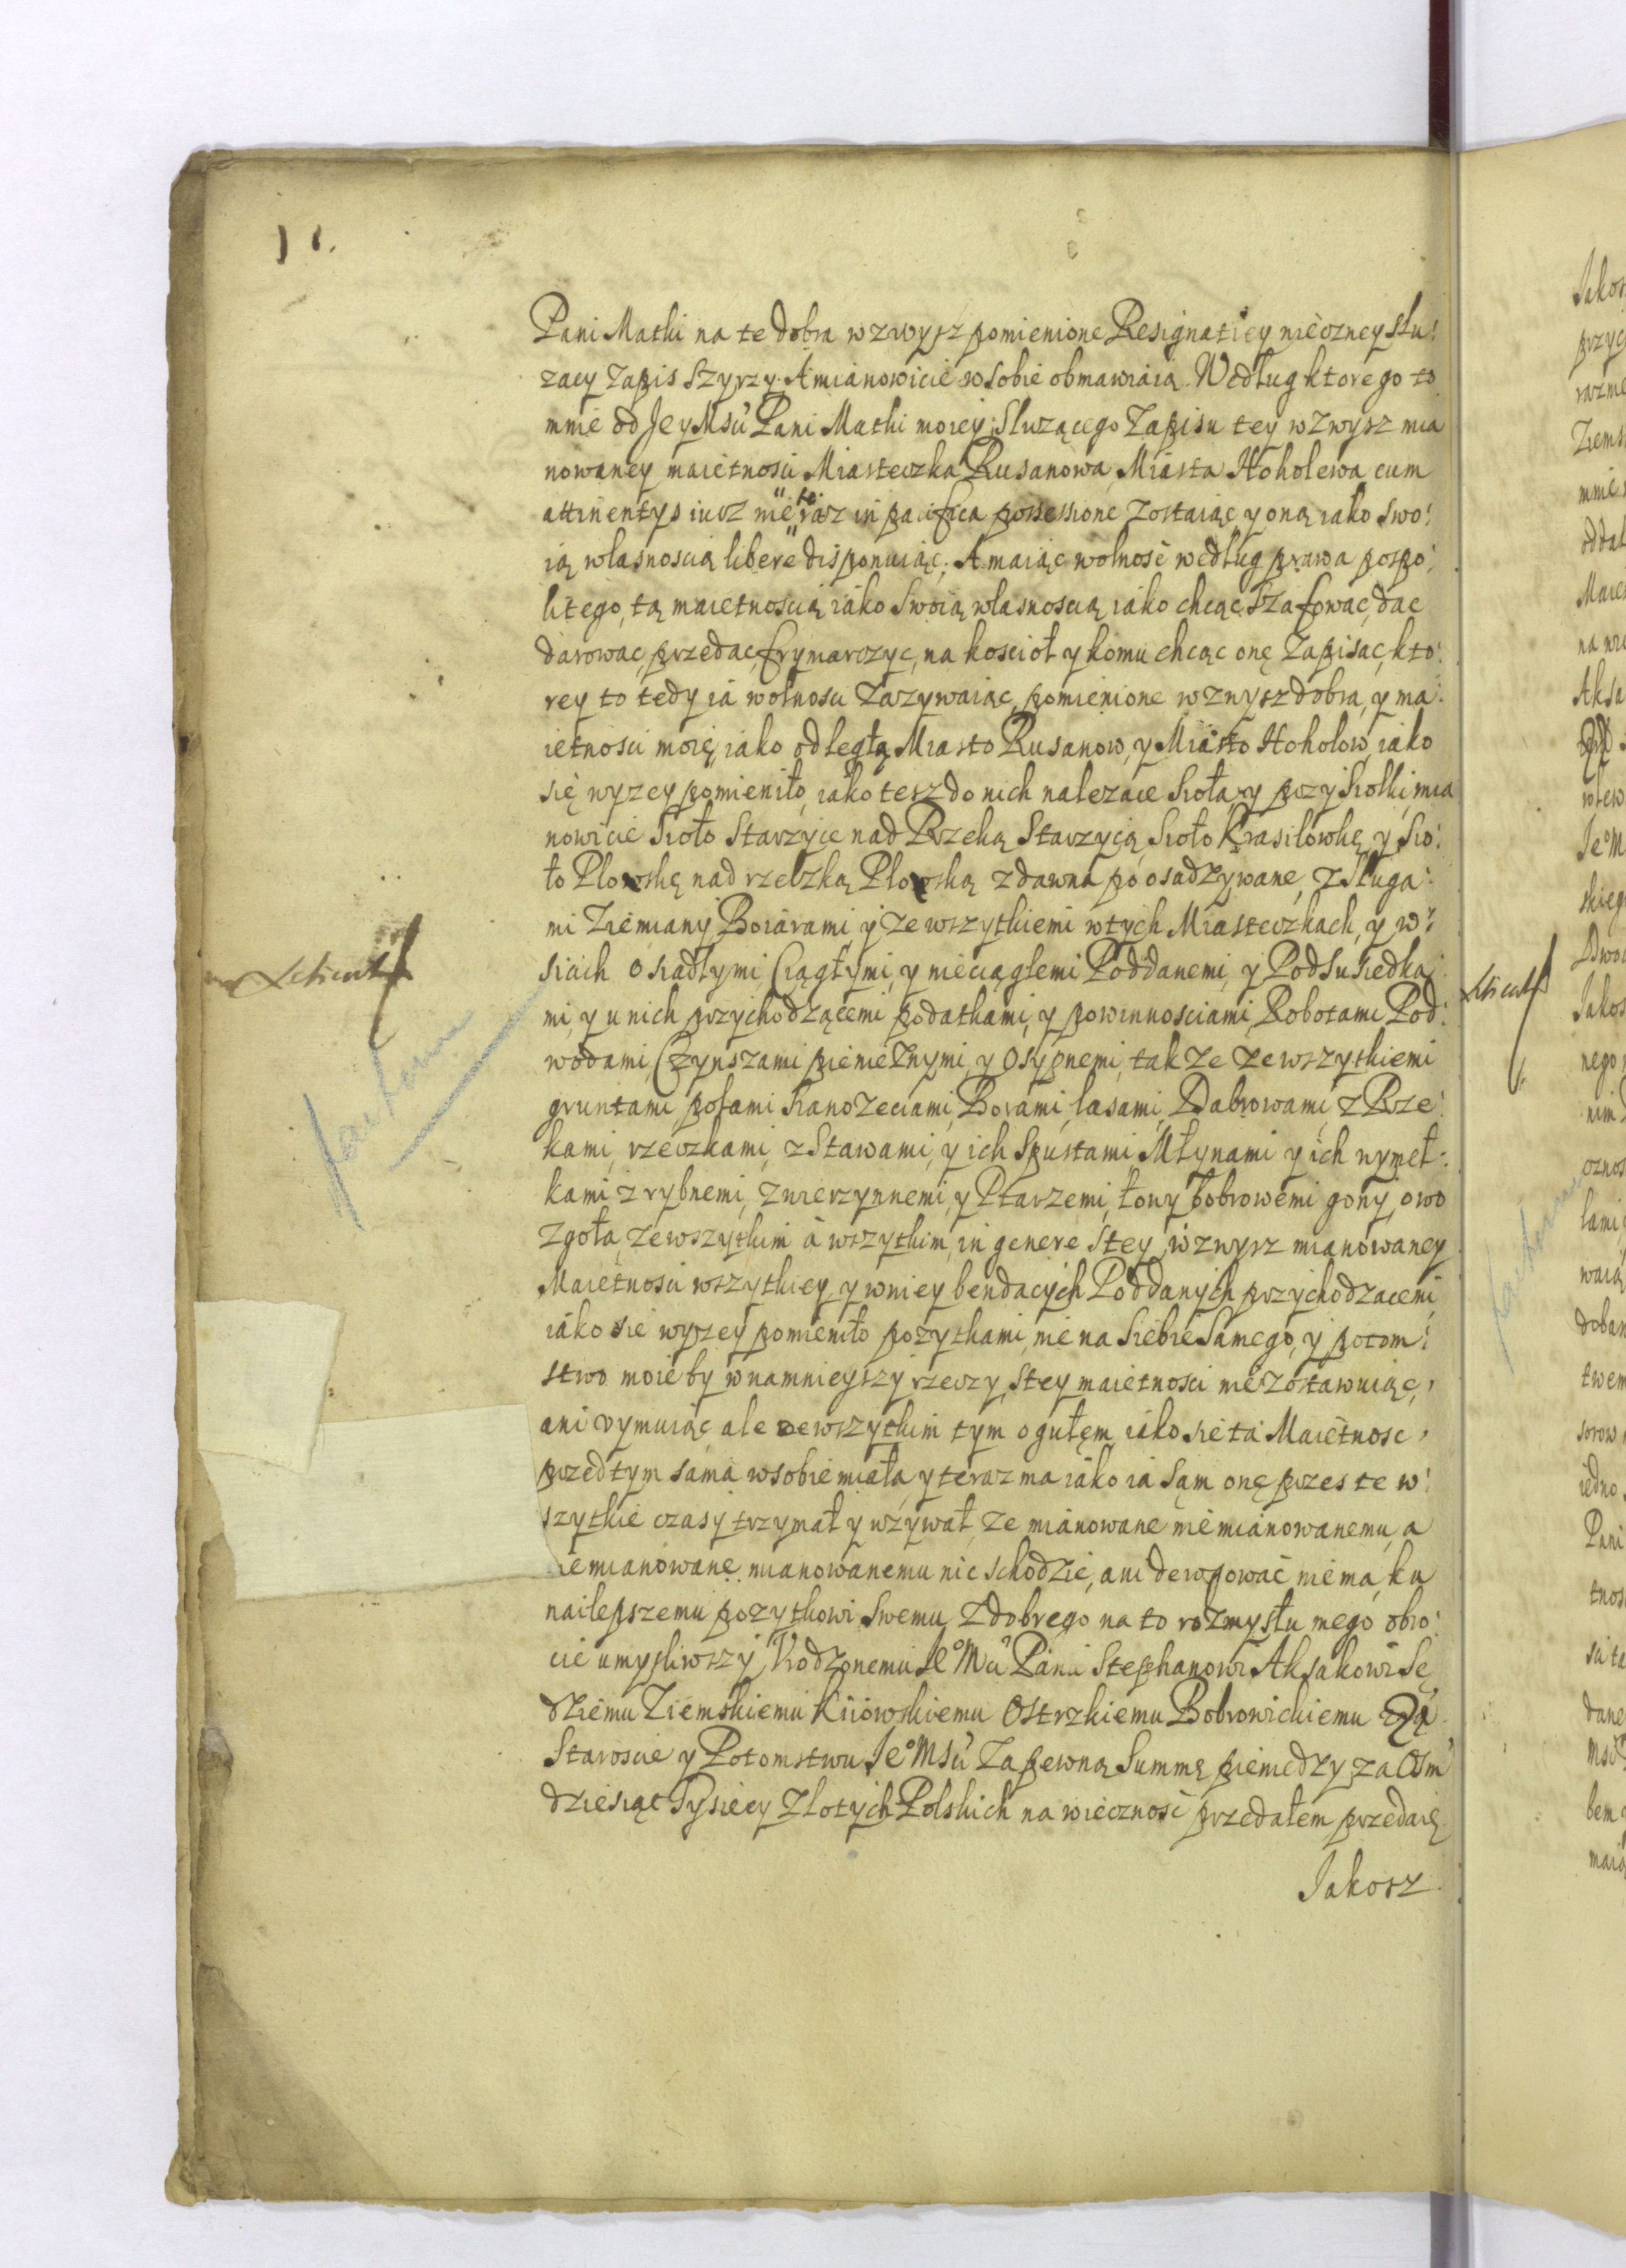 Pani Matki na te dobra wzwysz pomienione Resignatiey wieczney słu:
zacy Zapis Szyrzy. A mianowicie w sobie obmawiaią. Według ktorego to
mnie od Jey Mśći Pani Matki moiey Sluzącego Zapisu tey wzwysz mia
nowaney maiętnosci Miasteczka Rusanowa, Miasta Hoholewa cum
attinentys iusz nie teraz in pacifica possessione zostaiąc y oną iako swo:
ią własnoscią libere disponuiąc. A maiąc wolność według prawa pospo:
litego, tą maietnoscią iáko swoią własnoscią iako chcąc szafować, dac
darowac, przedac, frymarczyc, na kosciół y komu chcąc onę Zapisac, kto:
rey to tedy iá wolnosci zazywaiąc, pomienione wzwysz dobra, y ma:
ietnosci moię, iako odległą Miasto Rusanow, y Miásto Hoholow, iáko
się wyzey pomieniło, iako tesz do nich nalezace sioła, y przysiołki, mia
nowicie Sioło Starzyce nad Rzeką Starzycą, sioło Krasiłowkę, y sio:
ło Płowskę nad rzeczką Płowską zdawna po osadzywane, z sługa:
mi Ziemiany Boiárami, y ze wszytkiemi w tych Miasteczkach, y w:
siach osiadłymi, Ciągłymi, y nieciągłemi Poddanemi, y Podsusiedka:
mi, y u nich przychodzącemi podatkami, y powinnosciami, Robotami Pod:
wodami, Czynszami pienieżnymi, y Osypnemi, także ze wszytkiemi
gruntami, polami sianożeciami, Borami, lasami, Dabrowami, z Rze:
kami, rzeczkami, z Stawami, y ich Spustami Młynami y ich wymeł:
kami z rybnemi, zwierzynnemi, y Ptaszemi, łowy bobrowemi gony, owo
zgoła, ze wszytkim á wszytkim, in genere s tey wzwysz mianowaney
Maiętnosci wszytkiey, y w niey bendacych Poddanych przychodzacemi,
iáko sie wyszey pomieniło pozytkami, nie na siebie samego, y potom:
stwo moie by w namnieyszy rzeczy, s tey maietnosci nie zostawuiąc,
ani vymuiąc, ale ze wszytkim tym ogułem, iáko sie ta Maiętnosc,
przed tym sama w sobie miała, y teraz ma iáko iá sąm onę przes te w:
szytkie czasy trzymał y uzywał, ze mianowane niemianowanemu, a
niemianowane mianowanemu nic schodzić, ani derogować nie ma, ku
nailepszemu pozytkowi swemu z dobrego na to rozmysłu mego obro:
cic umysliwszy, Vrodzonemu Jeo Mći Panu Stephanowi Aksakowi Sę
dziemu Ziemskiemu Kiiowskiemu Ostrzkiemu Bobrowickiemu
Staroscie y Potomstwu Jeo Mśći Za pewną Summę pieniedzy za Osm
dziesiąt Tysiecy Złotych Polskich na wieczność przedałem przedaię
Jakosz